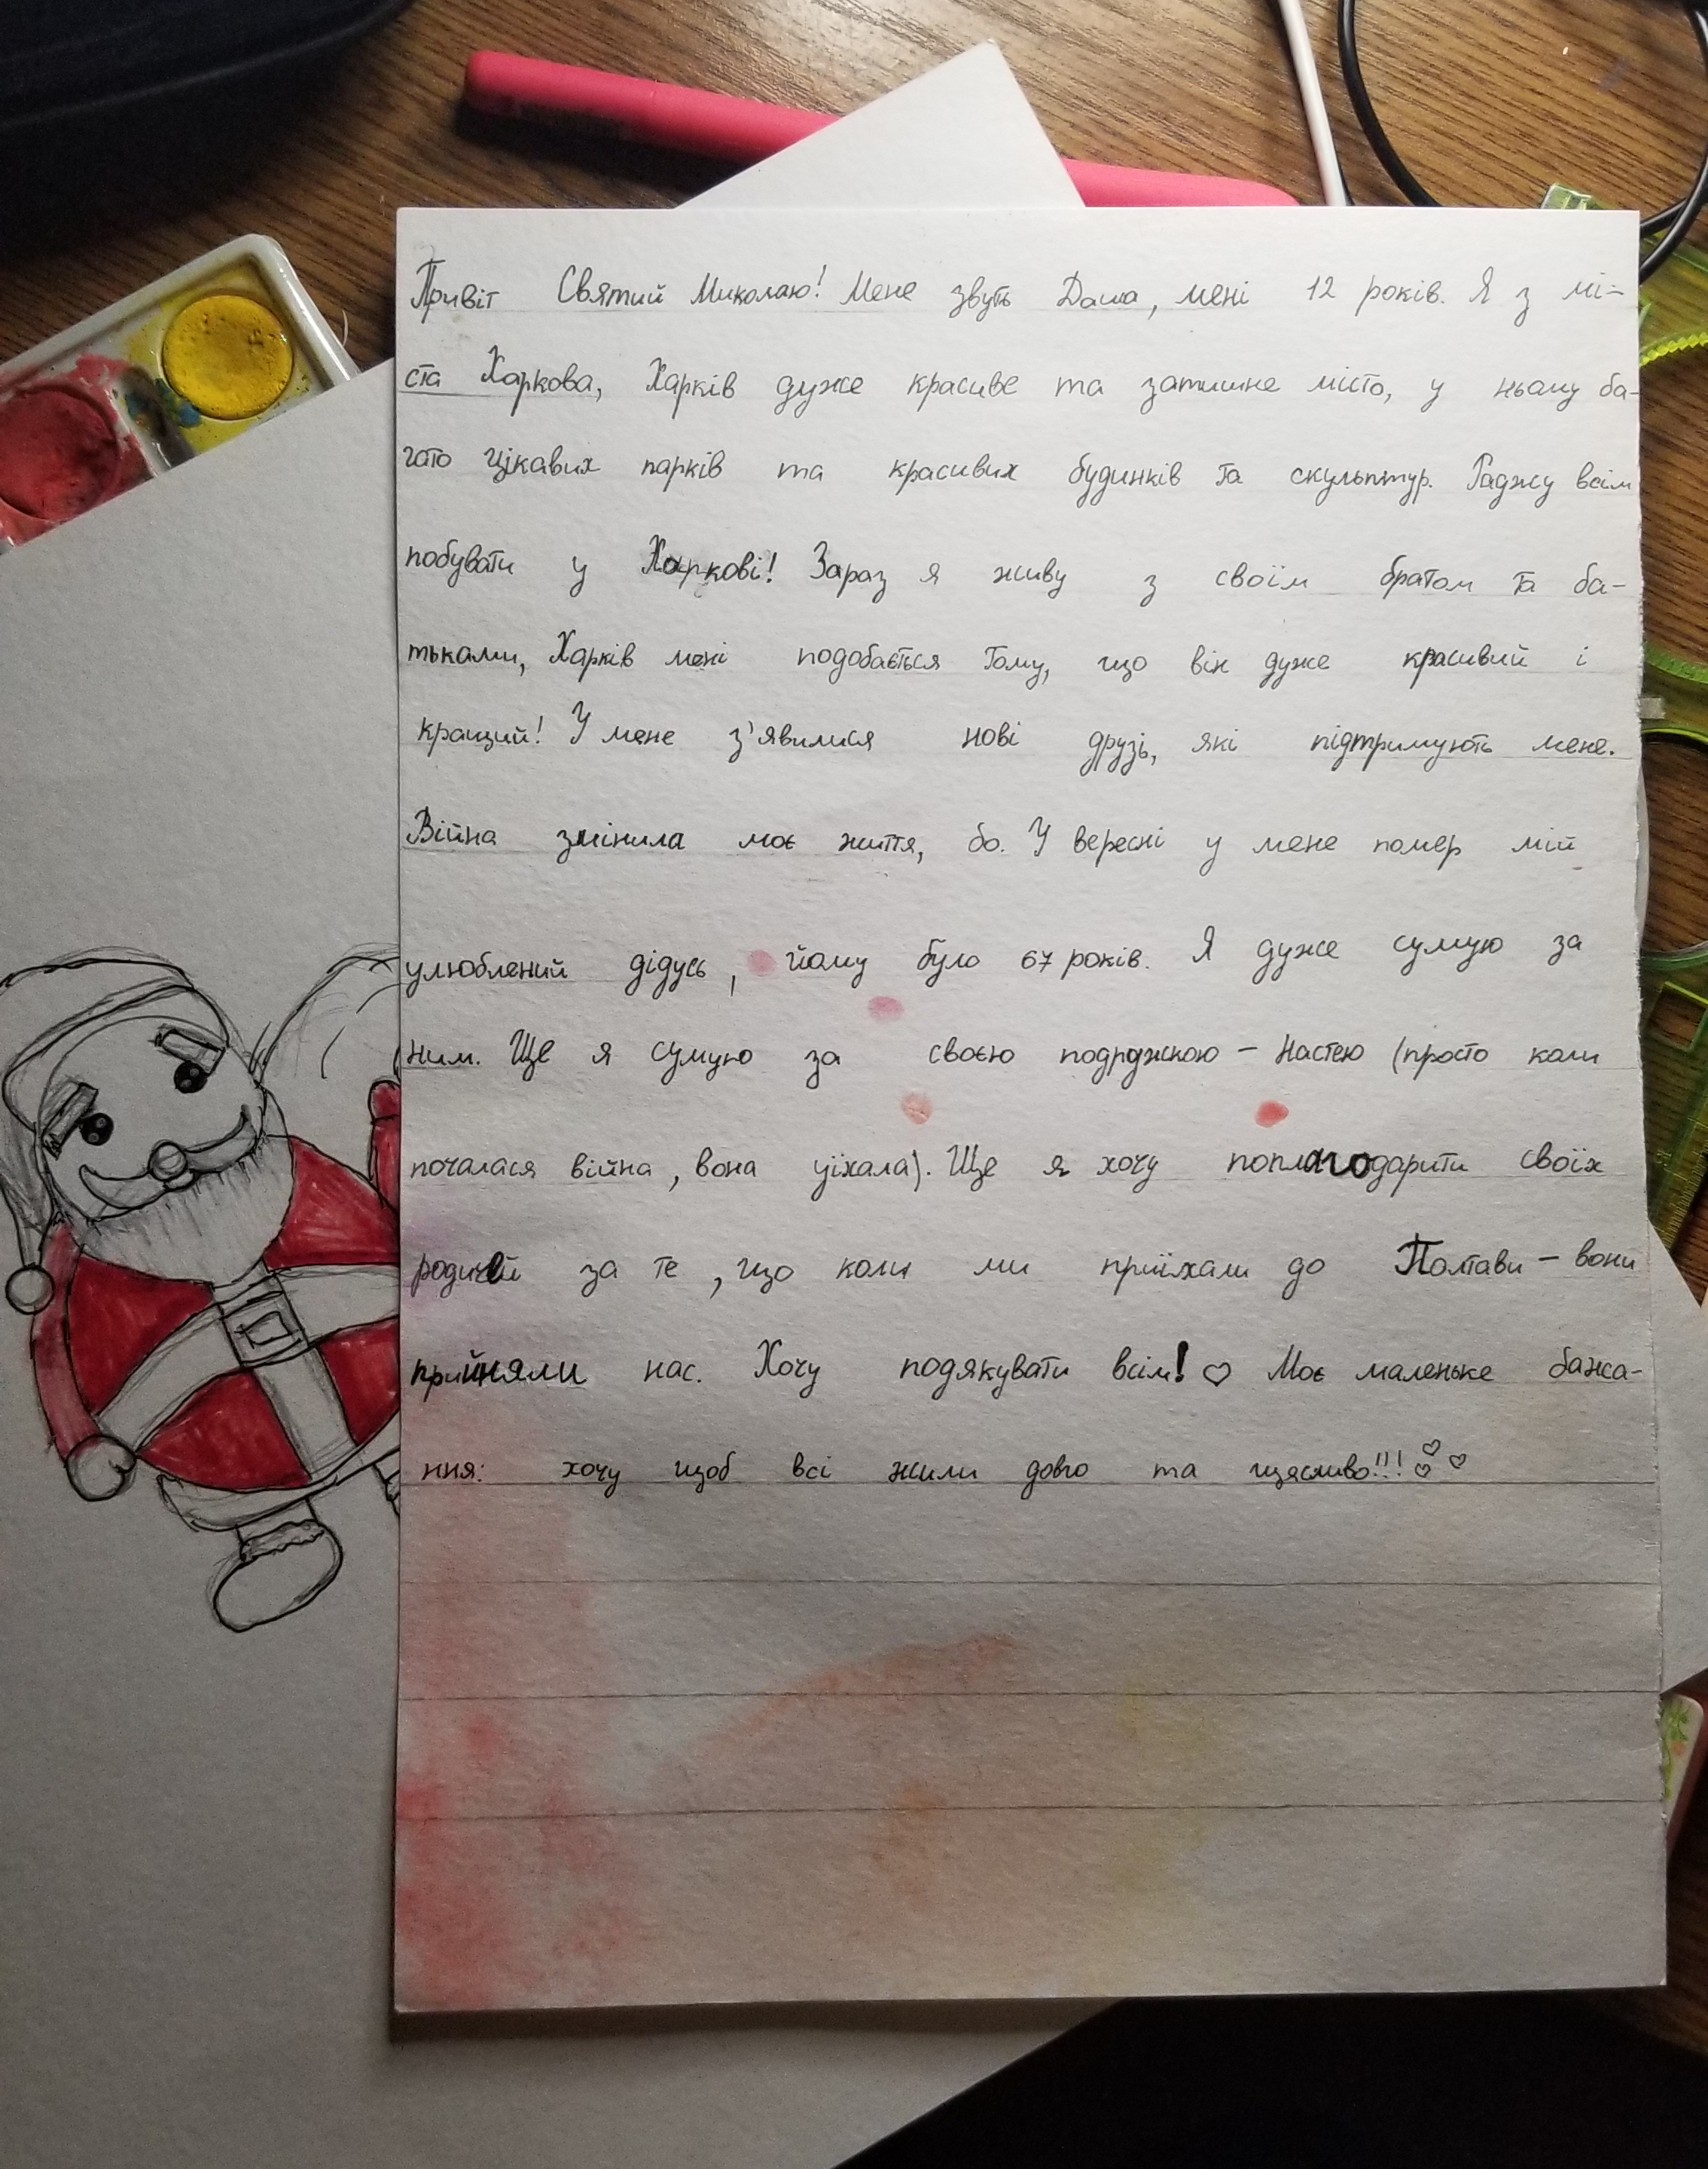 Привіт Святий Миколаю! Мене звуть Даша, мені 12 років. Я з мі-
ста Харкова, Харків дуже красиве та затишне місто, у ньому ба-
гато цікавих парків та красивих будинків та скульптур. Раджу всім
побувати у Харкові! Зараз я живу з своїм братом та ба-
тьками, Харків мені подобається тому, що він дуже красивий і
кращий! У мене з'явилися нові друзі, які підтримують мене.
Війна змінила моє життя, бо. У вересні у мене помер мій
улюблений дідусь, йому було 67 років. Я дуже сумую за
ним. Ще я сумую за своєю подружкою - Настею (просто коли
почалася війна, вона уїхала). Ще я хочу поплагодарити своїх
родичей за те, що коли ми приїхали до Полтави - вони
прийняли нас. Хочу подякувати всім! ♡ Моє маленьке бажа-
ння: хочу щоб всі жили довго та щасливо!!! ♡♡♡